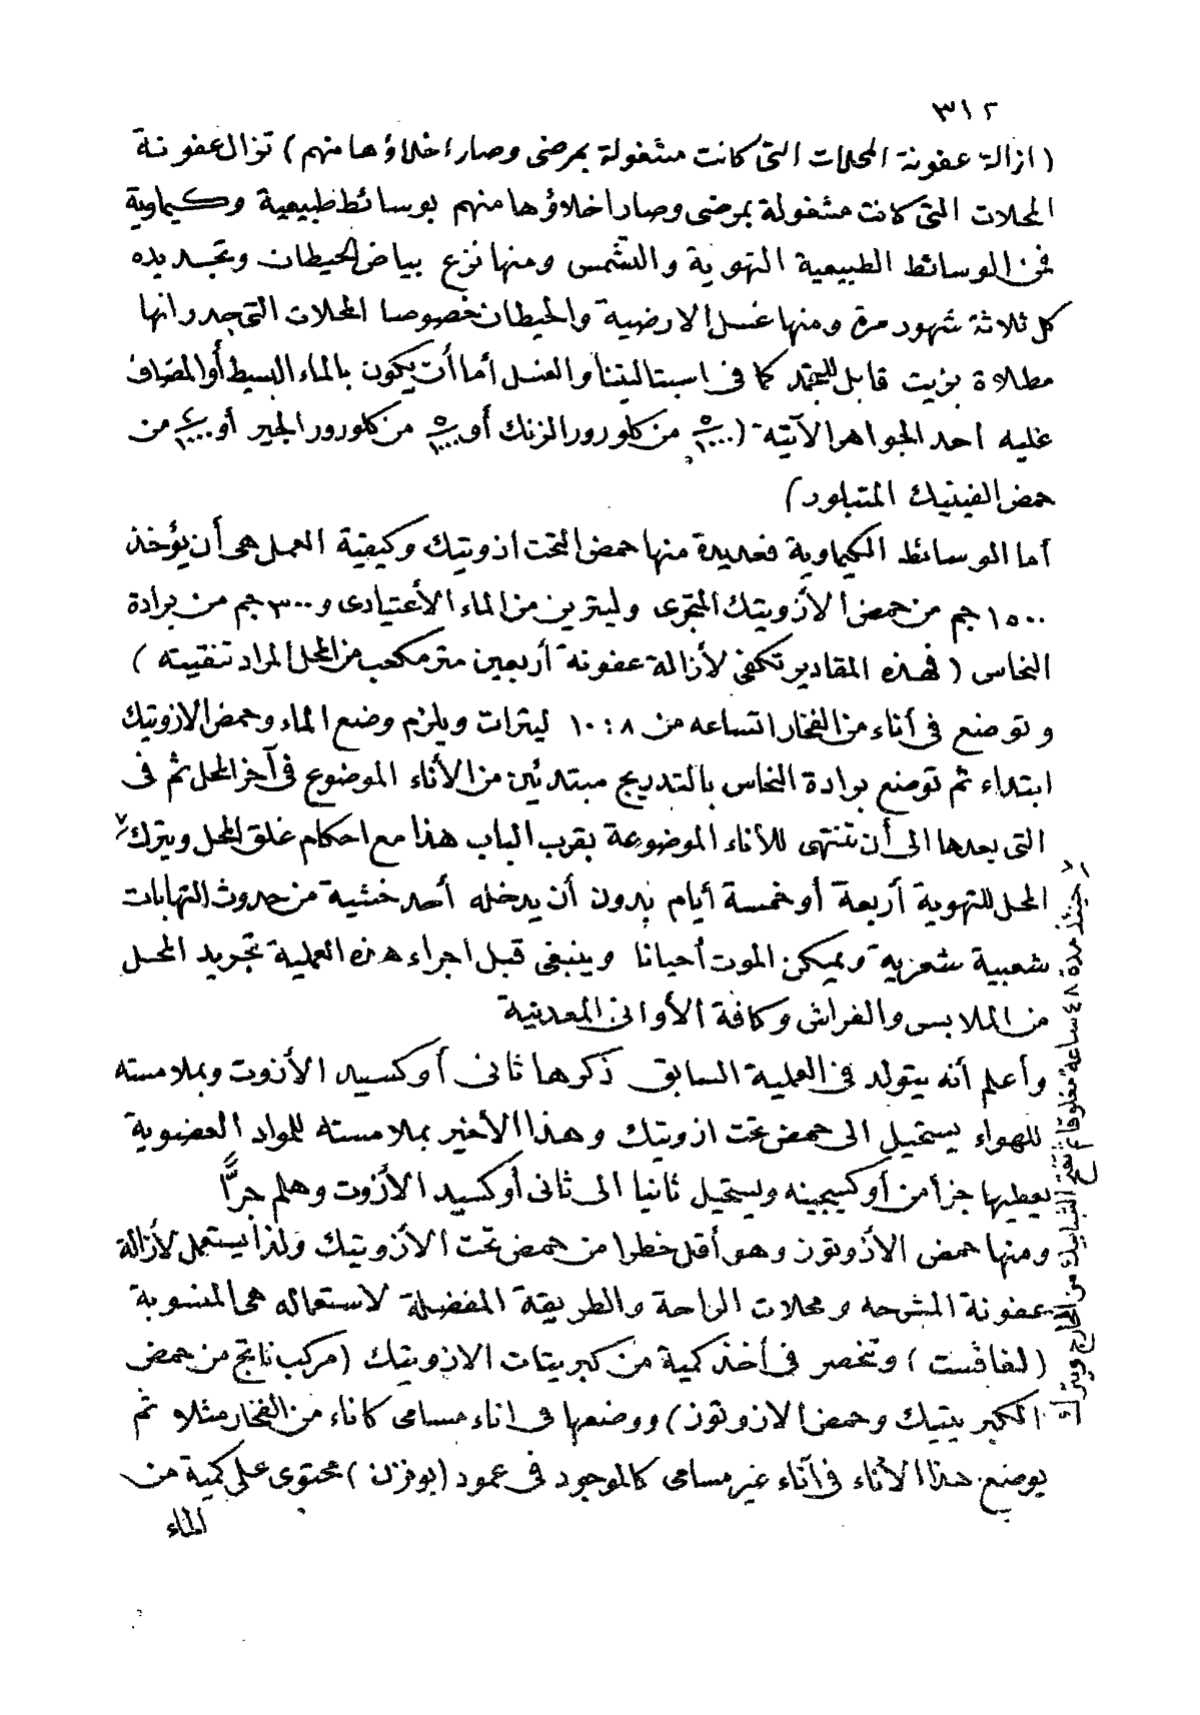 ٣١٢
(ازالة عفونة المحلات التى كانت مشغولة بمرضى وصار اخلاؤها منهم) تزال عفونة
المحلات التى كانت مشغولة بمرضى وصار اخلاؤها منهم بوسائط طبيعية وكيماوية
فمن الوسائط الطبيعية التهوية والتشمس ومنها نزع بياض الحيطان وتجديده
كل ثلاثة شهور مرة ومنها غسل الارضية والحيطان خصوصا المحلات التى جدرانها
مطلاة بزيت قابل للتجمد كما فى اسبتاليتنا والغسل أما أن يكون بالماء البسيط أو المضاف
عليه احد الجواهر الآتية (٥/١٠٠٠ من كلورور الزنك أو ٥/١٠٠٠ من كلورور الجير أو ٤/١٠٠٠ من
حمض الفينيك المتبلور)
أما الوسائط الكيماوية فعديدة منها حمض التحت ازوتيك وكيفية العمل هى أن يؤخذ
١٥٠٠ جم من حمض الأزوتيك المتجرى وليترين من الماء الأعتيادى و٣٠٠ جم من برادة
النحاس (فهذه المقادير تكفى لأزالة عفونة أربعين متر مكعب من المحل المراد تنقيته)
وتوضع فى أناء من الفخار اتساعه من ٨ : ١٠ ليترات ويلزم وضع الماء وحمض الازوتيك
ابتداء ثم توضع برادة النحاس بالتدريج مبتدئين من الأناء الموضوع فى آخر المحل ثم فى
التى بعدها الى أن تنتهى للأناء الموضوعة بقرب الباب هذا مع احكام غلق المحل ويترك
المحل للتهوية أربعة أو خمسة أيام بدون أن يدخله أحد خشية من حدوث التهابات
شعبية شعرية ويمكن الموت أحيانا وينبغى قبل اجراء هذه العملية تجريد المحل
من الملابس والفراش وكافة الأوانى المعدنية
وأعلم أنه يتولد فى العملية السابق ذكرها ثانى أوكسيد الأزوت وبملامسته
للهواء يستحيل الى حمض تحت ازوتيك وهذا الأخير بملامسته للمواد العضوية
يعطيها جزأ من أوكسيجينه ويستحيل ثانيا الى ثانى أوكسيد الأزوت وهلم جرًّا
ومنها حمض الأزوتوز وهو أقل خطرا من حمض تحت الأزوتيك ولذا يستعمل لأزالة
عفونة المشرحه ومحلات الراحة والطريقة المفضلة لاستعماله هى المنسوبة
(لغافست) وتنحصر فى أخذ كمية من كبريتات الازوتيك (مركب ناتج من حمض
الكبريتيك وحمض الازوتوز) ووضعها فى اناء مسامى كاناء من الفخار مثلا ثم
يوضع هذا الأناء فى آناء غير مسامى كالموجود فى عمود (بونزن) محتوى على كمية من
الماء
حينئذ مدة ٤٨ ساعة مغلوقا ثم تفتح الشبابيك من الخارج ويترك